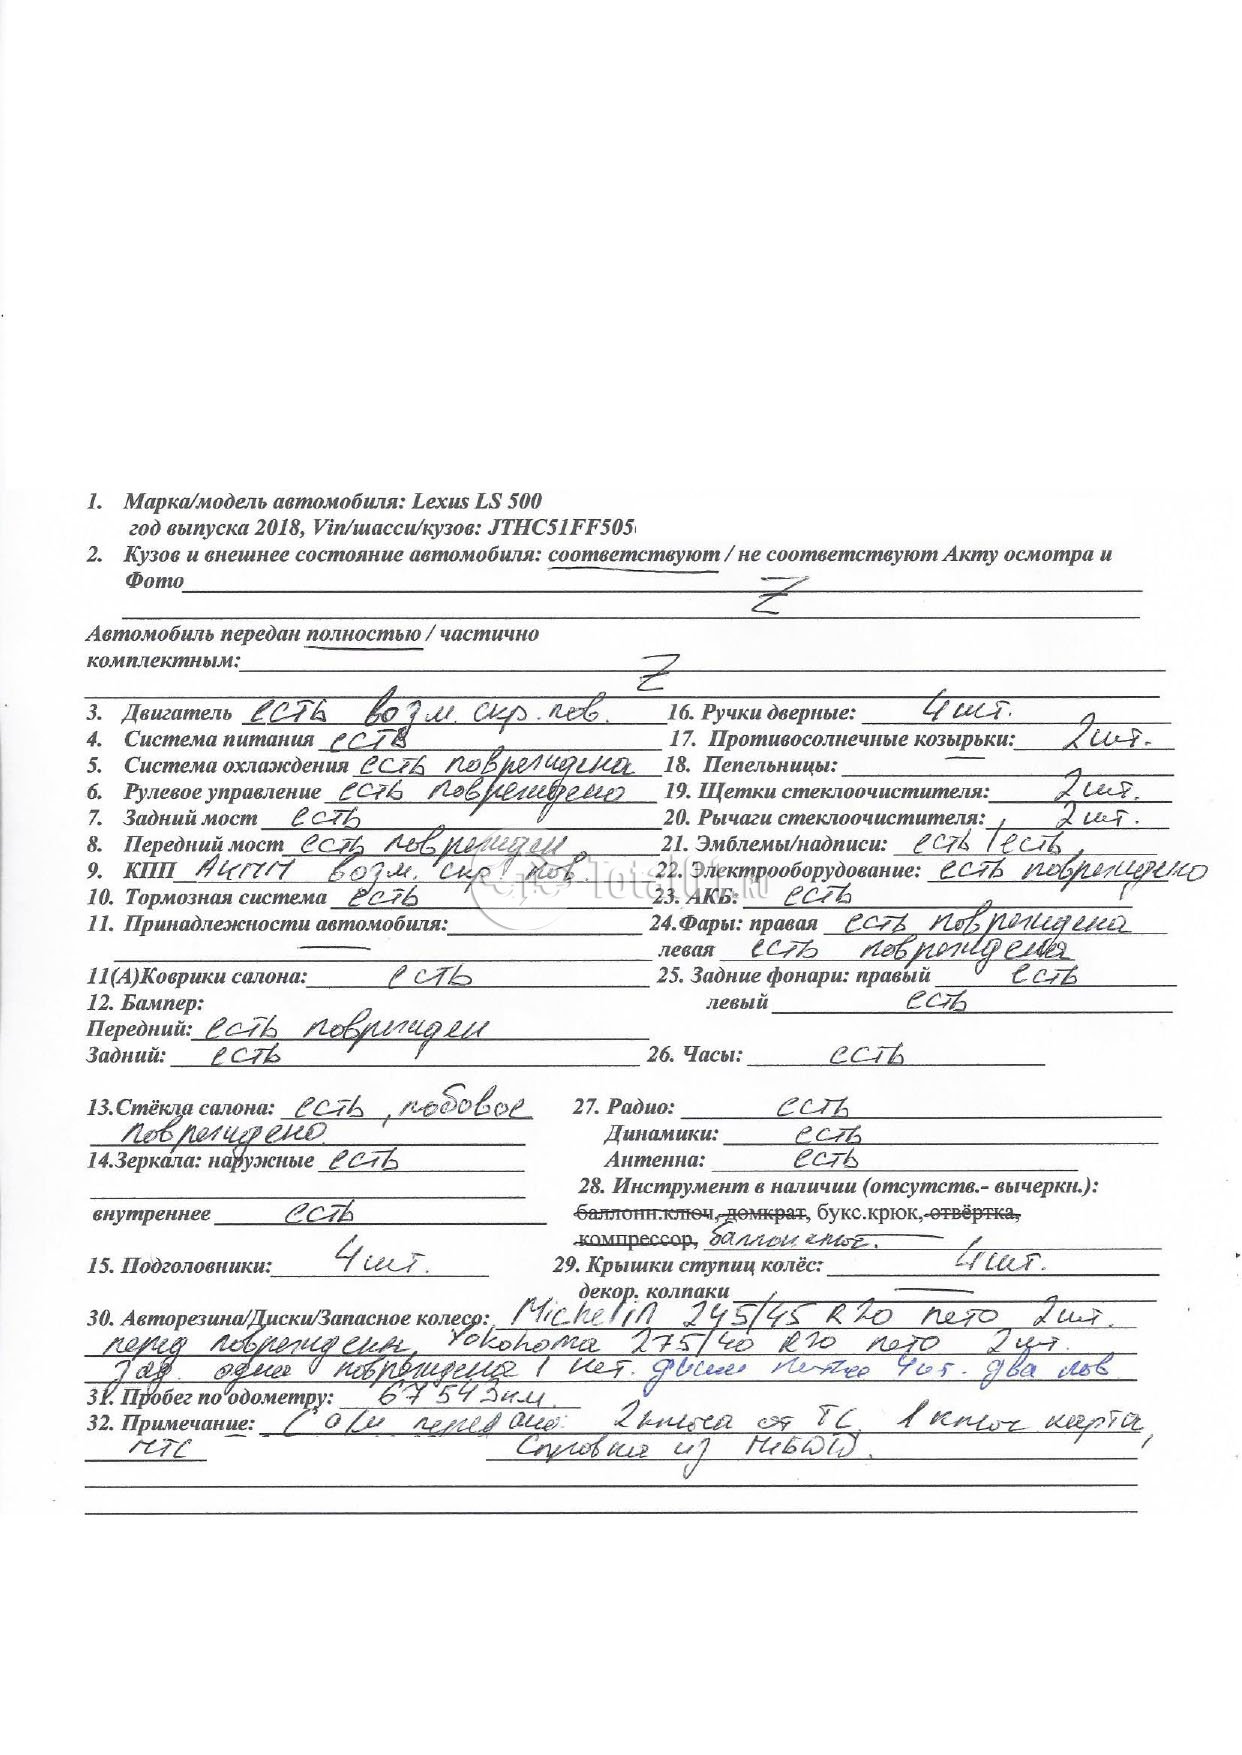 1. Марка/модель автомобиля: Lexus LS 500
год выпуска 2018, Vin/шасси/кузов: JTHC51FF505
2. Кузов и внешнее состояние автомобиля: соответствуют / не соответствуют Акту осмотра и
Фото Z
Автомобиль передан полностью / частично
комплектным: Z
3. Двигатель есть возм. скр. пов. 16. Ручки дверные: 4 шт.
4. Система питания есть 17. Противосолнечные козырьки: 2 шт.
5. Система охлаждения есть повреждена 18. Пепельницы: —
6. Рулевое управление есть повреждено 19. Щетки стеклоочистителя: 2 шт.
7. Задний мост есть 20. Рычаги стеклоочистителя: 2 шт.
8. Передний мост есть поврежден 21. Эмблемы/надписи: есть / есть
9. КПП АКПП возм. скр. пов. 22. Электрооборудование: есть повреждено
Total01.RU
10. Тормозная система есть 23. АКБ: есть
11. Принадлежности автомобиля: — 24.Фары: правая есть повреждена
левая есть повреждена
11(А)Коврики салона: есть 25. Задние фонари: правый есть
12. Бампер: левый есть
Передний: есть поврежден
Задний: есть 26. Часы: есть
13.Стёкла салона: есть, лобовое 27. Радио: есть
повреждено Динамики: есть
14.Зеркала: наружные есть Антенна: есть
28. Инструмент в наличии (отсутств.- вычеркн.):
внутреннее есть баллонн.ключ, домкрат, букс.крюк, отвёртка,
компрессор, баллон ключ.
15. Подголовники: 4 шт. 29. Крышки ступиц колёс: 4 шт.
декор. колпаки —
30. Авторезина/Диски/Запасное колесо: Michelin 245/45 R20 лето 2 шт.
перед поврежден, Yokohoma 275/40 R20 лето 2 шт
зад. одна повреждена 1 нет. диски 4шт. два пов
31. Пробег по одометру: 67 543 км.
32. Примечание: С а/м передано: 2 ключа от ТС, 1 ключ карта,
ПТС Справка из ГИБДД.